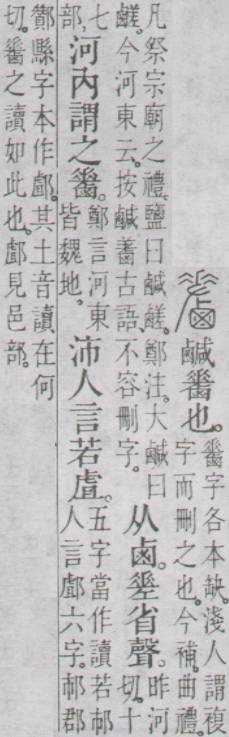 鹹䴾也。䴾字各本缺。淺人謂複
字而刪之也。今補。曲禮。
凡祭宗廟之禮。鹽曰鹹鹺。鄭注。大鹹曰
鹺。今河東云。按鹹䴾古語。不容刪字。
从鹵。𢀩省聲。昨河
切。十
七
部。
河內謂之䴾。鄭言河東
皆魏地。
沛人言若虘。五字當作讀若沛
人言䣜六字。沛郡
酇縣字本作䣜。其土音讀在何
切。䴾之讀如此也。䣜見邑部。